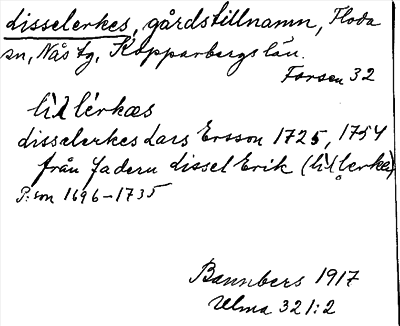 disselerkes, gårdstillnamn, Floda
sn, Nås tg, Kopparbergs län.
Forsen 32
lìllérkæs
disselerkes Lars Ersson 1725, 1754
från fadern dissel Erik (lìllerke)
P:son 1696-1735
Bannbers 1917
Ulma 321:2